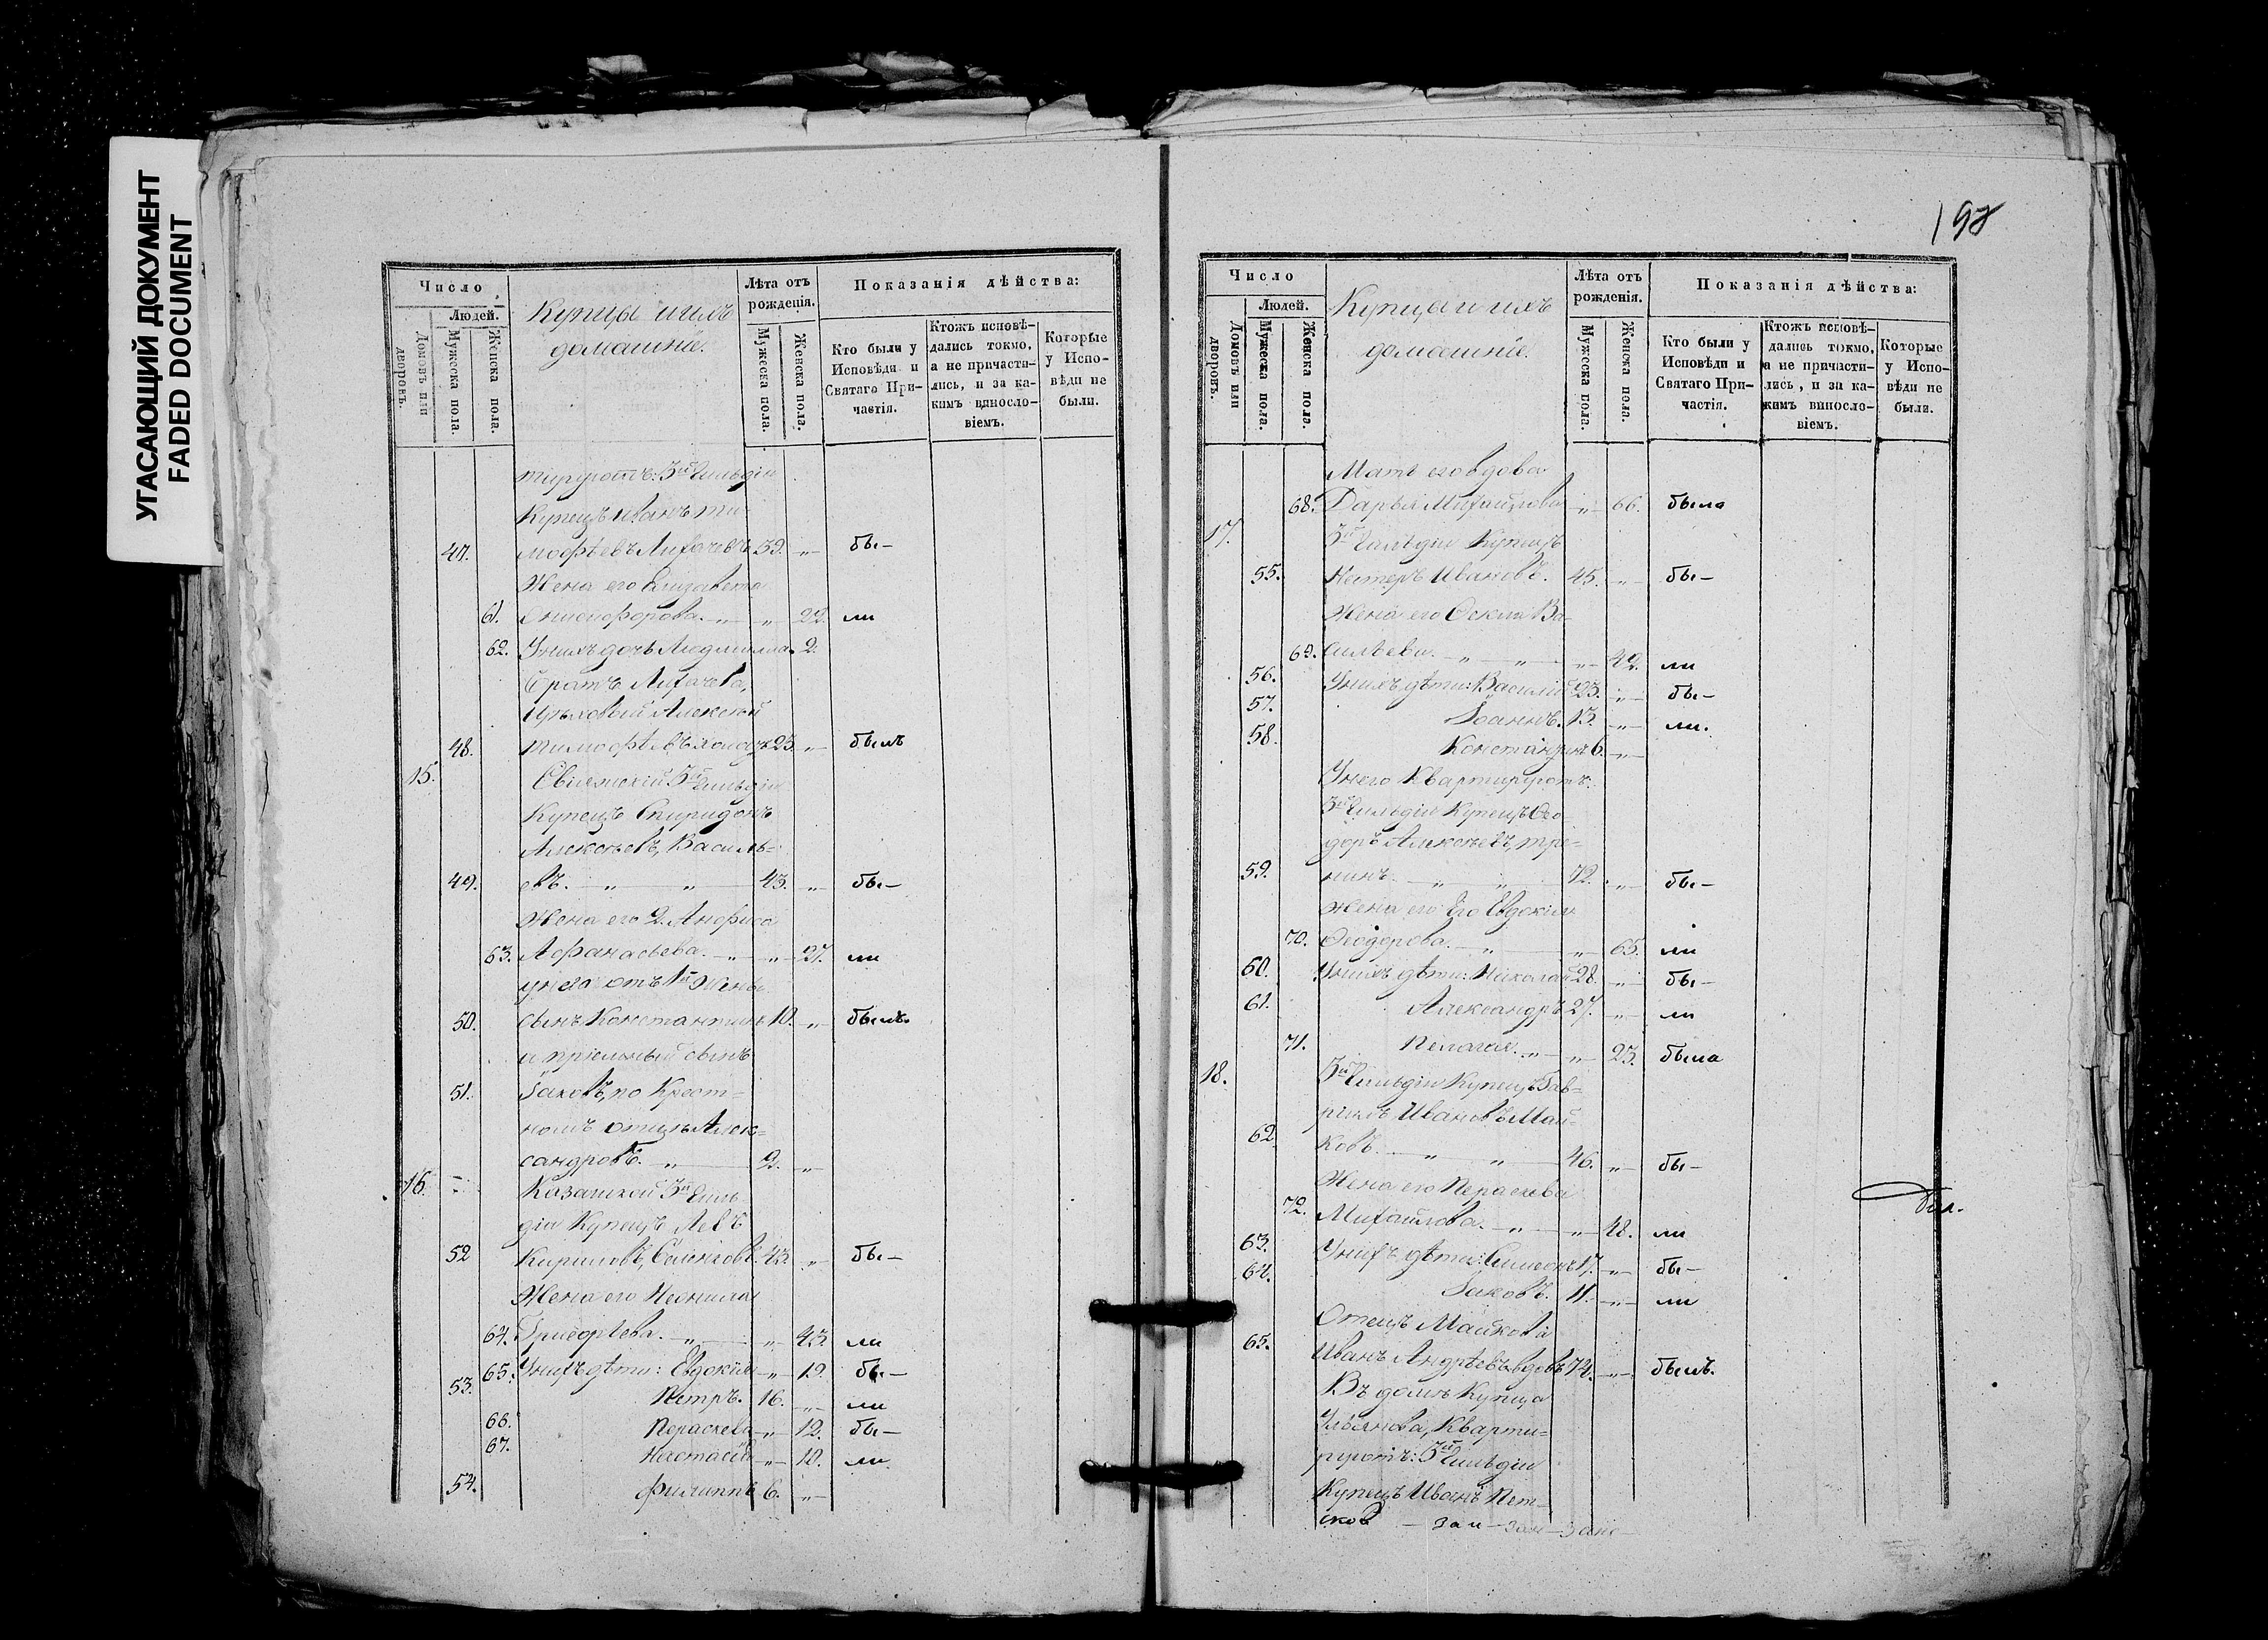 УГАСАЮЩИЙ ДОКУМЕНТ
FADED DOCUMENT
Число
Людей.
Домовъ или дворовъ.
Мужеска пола.
Женска пола.
Купцы и ихъ
домашніе.
Лѣта отъ рожденія.
Мужеска пола.
Женска пола.
Показанія дѣйства:
Кто были у Исповѣди и Святаго Причастія.
Ктожъ исповѣдались токмо, а не причастились, и за какимъ винословіемъ.
Которые у Исповѣди не были.
3й Гильдіи
Купецъ Иванъ Ти-
47. мофѣевъ Лихачевъ 59. „ бы—
Жена его Елизавета
61. Онисифорова. „ „ 22. ли
62. У нихъ дочь Людмилла. 2.
Братъ Лихачева,
Алексѣй
48. Тимофѣевъ 23. „ былъ
15. Свіяжскій 3й Гильдіи
Купецъ Спиридонъ
Алексѣевъ, Василь-
49. евъ. „ „ 43. „ бы—
Жена его 2. Анфиса
63. Афанасьева. „ „ 27. ли
у него отъ 1й Жены
50. сынъ Константинъ 10. „ былъ.
и пріемный сынъ
51. Іаковъ, по Крест-
номъ отцѣ Алек-
сандровъ. „ 2. „
16. 3й Гиль-
діи Купецъ Левъ
52 Кириловъ, 43. „ бы—
Жена его Неонила
64. Григорьева. „ „ 43. ли
65. У нихъ дѣти: Евдокія „ 19. бы—
53. Петръ. 16. „ ли
66. Параскева „ 12. бы—
67. Настасія „ 10. ли
54. Филиппъ 6. „
198
Число
Людей.
Домовъ или дворовъ.
Мужеска пола.
Женска пола.
Купцы и ихъ
домашніе.
Лѣта отъ рожденія.
Мужеска пола.
Женска пола.
Показанія дѣйства:
Кто были у Исповѣди и Святаго Причастія.
Ктожъ исповѣдались токмо, а не причастились, и за какимъ винословіемъ.
Которые у Исповѣди не были.
Мать его вдова
68. Дарья Михайлова „ 66. была
17. 3й Гильдіи Купецъ
55. Нестеръ Ивановъ. 45. „ бы—
Жена его Фекла Ва-
69. сильева. „ „ „ 42. ли
56. У нихъ дѣти: Василій 23. „ бы—
57. Іоаннъ. 13. „ ли.
58. Константинъ 6. „
У него Квартируютъ:
3й Гильдіи Купецъ Ѳео-
доръ Алексѣевъ,
59. „ „ 72. „ бы—
Жена его Евдокія
70. Ѳеодорова. „ „ 65. ли
60. У нихъ дѣти: Николай 28. „ бы—
61. Александръ 27. „ ли
71. Пелагея. „ „ 23. была
18. 3й Гильдіи Купецъ Гав-
риилъ Ивановъ Май-
62. ковъ. „ „ 46. „ бы—
Жена его Параскева
72. Михайлова. „ „ 48. ли
63. У нихъ дѣти: Симеонъ 17. „ бы—
64. Іаковъ. 11. „ ли
Отецъ Майкова
65. Иванъ Андрѣевъ вдовъ 74. „ былъ.
Въ домѣ Купца
Ульянова, Кварти-
руютъ: 3й Гильдіи
Купецъ Иванъ